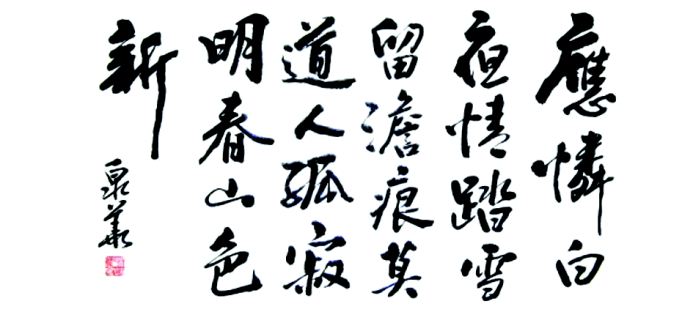 應憐白
夜情踏雪
留澹痕莫
道人孤寂
明春山色
新
泉華